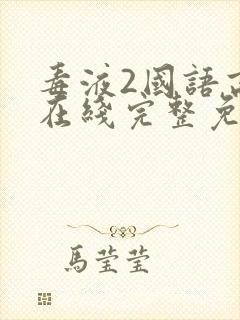 毒液2國語高
在綫完整免
馬瑩瑩